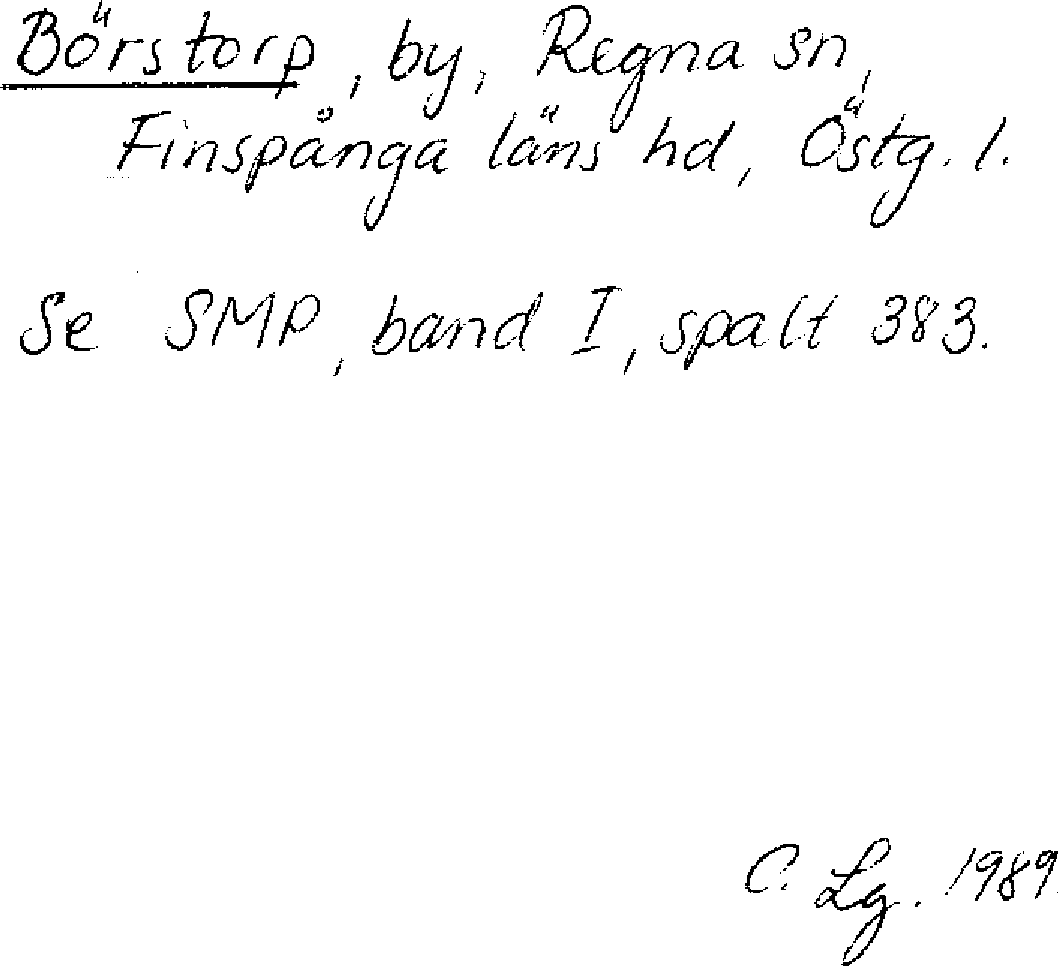 Börstorp, by, Regna sn,
Finspånga läns hd, Östg. l.
Se SMP, band I, spalt 383.
C. Lg. 1989.